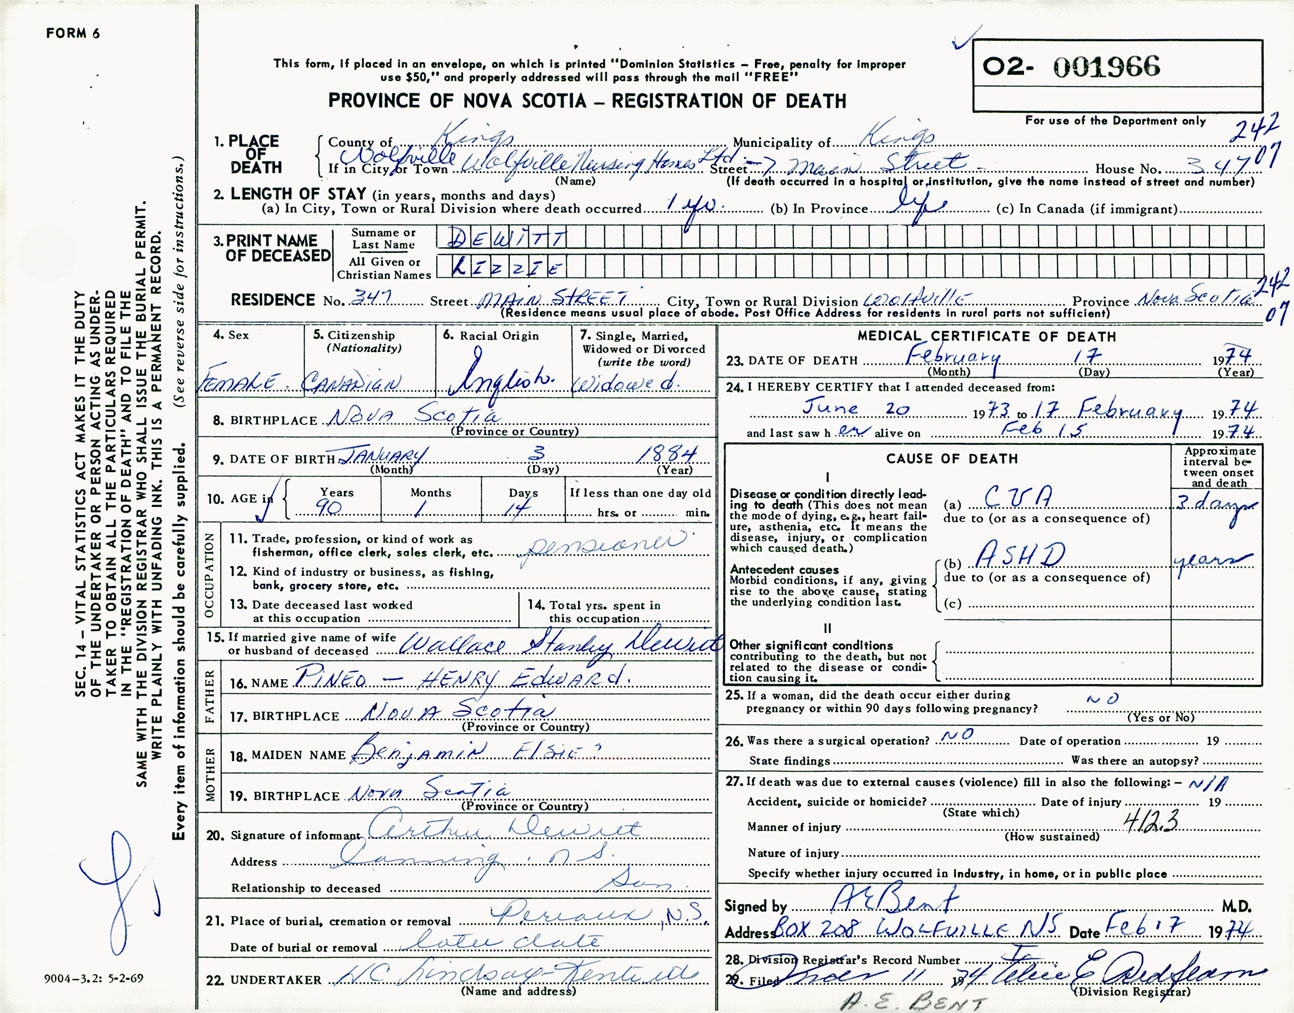 FORM 6
This form, if placed in an envelope, on which is printed "Dominion Statistics – Free, penalty for improper
use $50," and properly addressed will pass through the mail "FREE"
PROVINCE OF NOVA SCOTIA – REGISTRATION OF DEATH
O2- 001966
For use of the Department only
242
07
1. PLACE OF DEATH
County of Kings Municipality of Kings
If in City or Town Wolfville Wolfville Nursing Homes Ltd. Street Main Street House No. 347
(Name) (If death occurred in a hospital or institution, give the name instead of street and number)
2. LENGTH OF STAY (in years, months and days)
(a) In City, Town or Rural Division where death occurred 1 yr. (b) In Province life (c) In Canada (if immigrant)
3. PRINT NAME OF DECEASED
Surname or Last Name DEWITT
All Given or Christian Names LIZZIE
RESIDENCE No. 347 Street MAIN STREET City, Town or Rural Division Wolfville Province Nova Scotia
242
07
(Residence means usual place of abode. Post Office Address for residents in rural parts not sufficient)
4. Sex
FEMALE
5. Citizenship
(Nationality)
CANADIAN
6. Racial Origin
English.
7. Single, Married,
Widowed or Divorced
(write the word)
Widowed.
8. BIRTHPLACE NOVA SCOTIA
(Province or Country)
9. DATE OF BIRTH JANUARY 3 1884
(Month) (Day) (Year)
10. AGE in
Years Months Days If less than one day old
90 1 14 hrs. or min.
OCCUPATION
11. Trade, profession, or kind of work as
fisherman, office clerk, sales clerk, etc. pensioner
12. Kind of industry or business, as fishing,
bank, grocery store, etc.
13. Date deceased last worked
at this occupation
14. Total yrs. spent in
this occupation
15. If married give name of wife
or husband of deceased Wallace Stanley Dewitt
FATHER
16. NAME PINEO — HENRY EDWARD.
17. BIRTHPLACE NOVA SCOTIA
(Province or Country)
MOTHER
18. MAIDEN NAME Benjamin Elsie
19. BIRTHPLACE Nova Scotia
(Province or Country)
20. Signature of informant Arthur Dewitt
Address Canning, N.S.
Relationship to deceased Son
21. Place of burial, cremation or removal Pereaux, N.S.
Date of burial or removal later date
22. UNDERTAKER HC Lindsay - Kentville
(Name and address)
MEDICAL CERTIFICATE OF DEATH
23. DATE OF DEATH February 17 1974
(Month) (Day) (Year)
24. I HEREBY CERTIFY that I attended deceased from:
June 20 1973 to 17 February 1974
and last saw her alive on Feb 15 1974
CAUSE OF DEATH
Approximate
interval be-
tween onset
and death
I
Disease or condition directly lead-
ing to death (This does not mean
the mode of dying, e.g., heart fail-
ure, asthenia, etc. It means the
disease, injury, or complication
which caused death.)
(a) CVA 3 days
due to (or as a consequence of)
Antecedent causes
Morbid conditions, if any, giving
rise to the above cause, stating
the underlying condition last.
(b) ASHD years
due to (or as a consequence of)
(c)
II
Other significant conditions
contributing to the death, but not
related to the disease or condi-
tion causing it.
25. If a woman, did the death occur either during
pregnancy or within 90 days following pregnancy? NO
(Yes or No)
26. Was there a surgical operation? NO Date of operation 19
State findings Was there an autopsy?
27. If death was due to external causes (violence) fill in also the following: – N/A
Accident, suicide or homicide? Date of injury 19
(State which)
Manner of injury 4123
(How sustained)
Nature of injury
Specify whether injury occurred in industry, in home, or in public place
Signed by AE Bent M.D.
Address BOX 208 WOLFVILLE NS Date Feb 17 1974
28. Division Registrar's Record Number
29. Filed 11 1974
(Division Registrar)
A.E. BENT
SEC. 14 – VITAL STATISTICS ACT MAKES IT THE DUTY
OF THE UNDERTAKER OR PERSON ACTING AS UNDER-
TAKER TO OBTAIN ALL THE PARTICULARS REQUIRED
IN THE "REGISTRATION OF DEATH" AND TO FILE THE
SAME WITH THE DIVISION REGISTRAR WHO SHALL ISSUE THE BURIAL PERMIT.
WRITE PLAINLY WITH UNFADING INK. THIS IS A PERMANENT RECORD.
Every item of information should be carefully supplied. (See reverse side for instructions.)
9004–3.2: 5-2-69